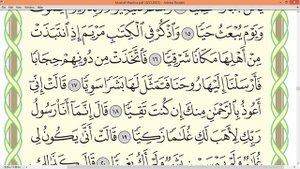 Mushaf Madina.pdf (SECURED) - Adobe Reader
وَيَوْمَ يُبْعَثُ حَيًّا ١٥ وَاذْكُرْ فِي الْكِتَٰبِ مَرْيَمَ إِذِ انتَبَذَتْ
مِنْ أَهْلِهَا مَكَانًا شَرْقِيًّا ١٦ فَاتَّخَذَتْ مِن دُونِهِمْ حِجَابًا
فَأَرْسَلْنَا إِلَيْهَا رُوحَنَا فَتَمَثَّلَ لَهَا بَشَرًا سَوِيًّا ١٧ قَالَتْ إِنِّي
أَعُوذُ بِالرَّحْمَٰنِ مِنكَ إِن كُنتَ تَقِيًّا ١٨ قَالَ إِنَّمَا أَنَا رَسُولُ
رَبِّكِ لِأَهَبَ لَكِ غُلَٰمًا زَكِيًّا ١٩ قَالَتْ أَنَّىٰ يَكُونُ لِي